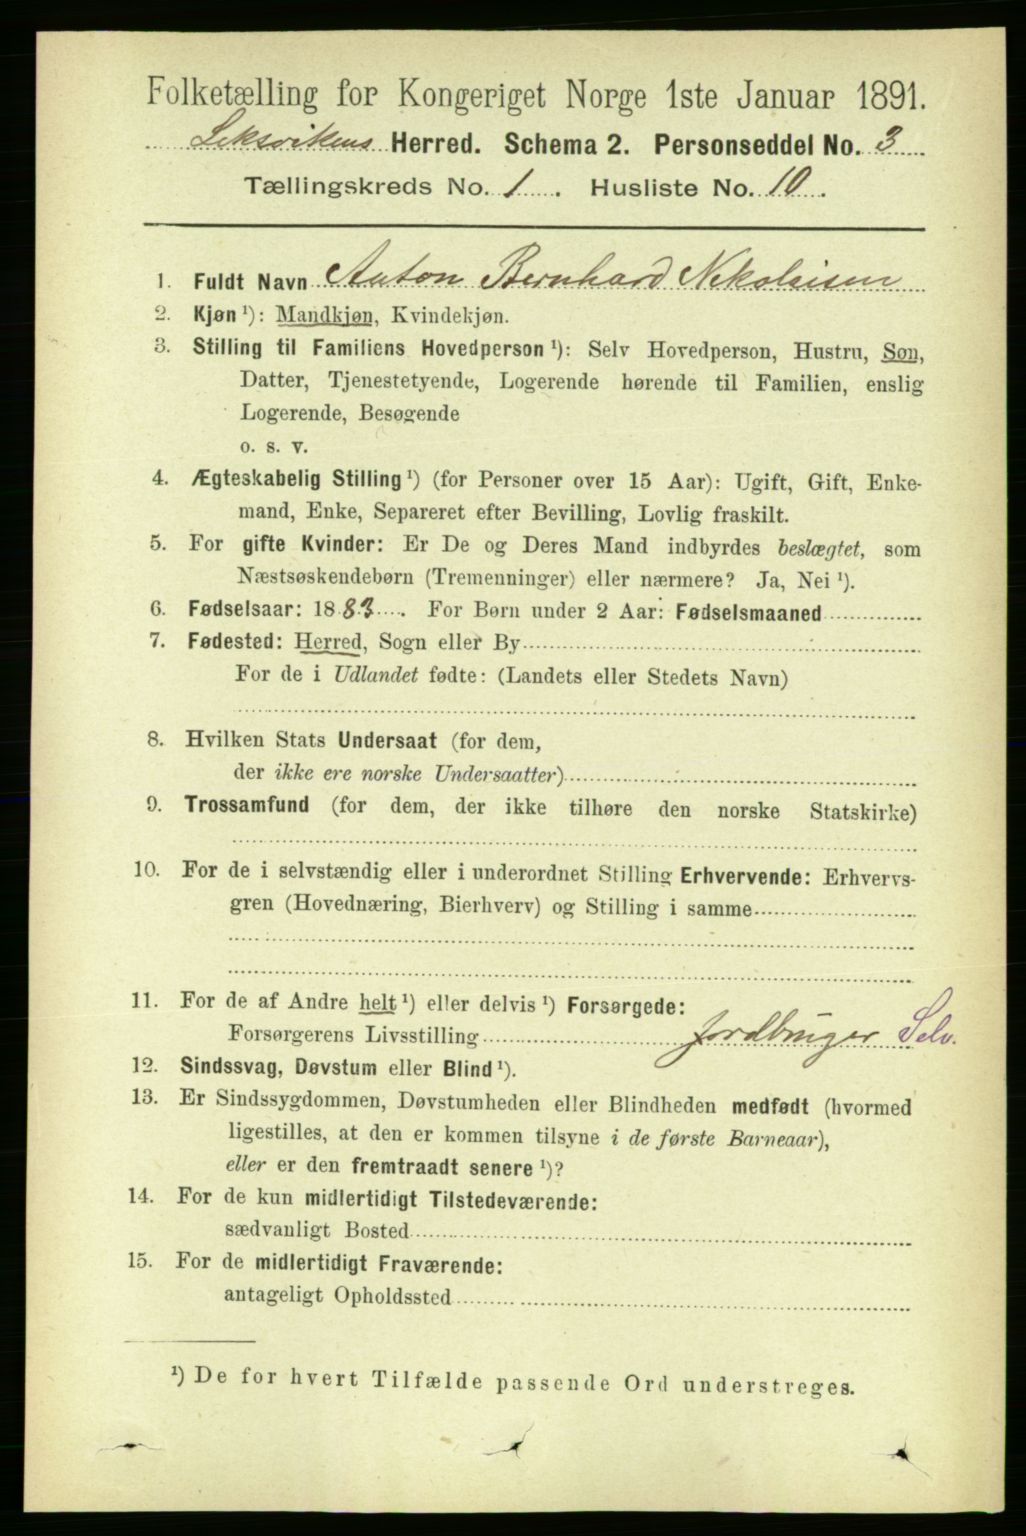 Folketælling for Kongeriget Norge 1ste Januar 1891.
Leksvikens Herred. Schema 2. Personseddel No. 3
Tællingskreds No. 1. Husliste No. 10.
1. Fuldt Navn Anton Bernhard Nikolaisen
2. Kjøn ¹): Mandkjøn, Kvindekjøn.
3. Stilling til Familiens Hovedperson ¹): Selv Hovedperson, Hustru, Søn,
Datter, Tjenestetyende, Logerende hørende til Familien, enslig
Logerende, Besøgende
o. s. v.
4. Ægteskabelig Stilling ¹) (for Personer over 15 Aar): Ugift, Gift, Enke-
mand, Enke, Separeret efter Bevilling, Lovlig fraskilt.
5. For gifte Kvinder: Er De og Deres Mand indbyrdes beslægtet, som
Næstsøskendebørn (Tremenninger) eller nærmere? Ja, Nei ¹).
6. Fødselsaar: 1883. For Børn under 2 Aar: Fødselsmaaned
7. Fødested: Herred, Sogn eller By
For de i Udlandet fødte: (Landets eller Stedets Navn)
8. Hvilken Stats Undersaat (for dem,
der ikke ere norske Undersaatter)
9. Trossamfund (for dem, der ikke tilhøre den norske Statskirke)
10. For de i selvstændig eller i underordnet Stilling Erhvervende: Erhvervs-
gren (Hovednæring, Bierhverv) og Stilling i samme
11. For de af Andre helt ¹) eller delvis ¹) Forsørgede:
Forsørgerens Livsstilling Jordbruger Selv.
12. Sindssvag, Døvstum eller Blind ¹).
13. Er Sindssygdommen, Døvstumheden eller Blindheden medfødt (hvormed
ligestilles, at den er kommen tilsyne i de første Barneaar),
eller er den fremtraadt senere ¹)?
14. For de kun midlertidigt Tilstedeværende:
sædvanligt Bosted
15. For de midlertidigt Fraværende:
antageligt Opholdssted
¹) De for hvert Tilfælde passende Ord understreges.